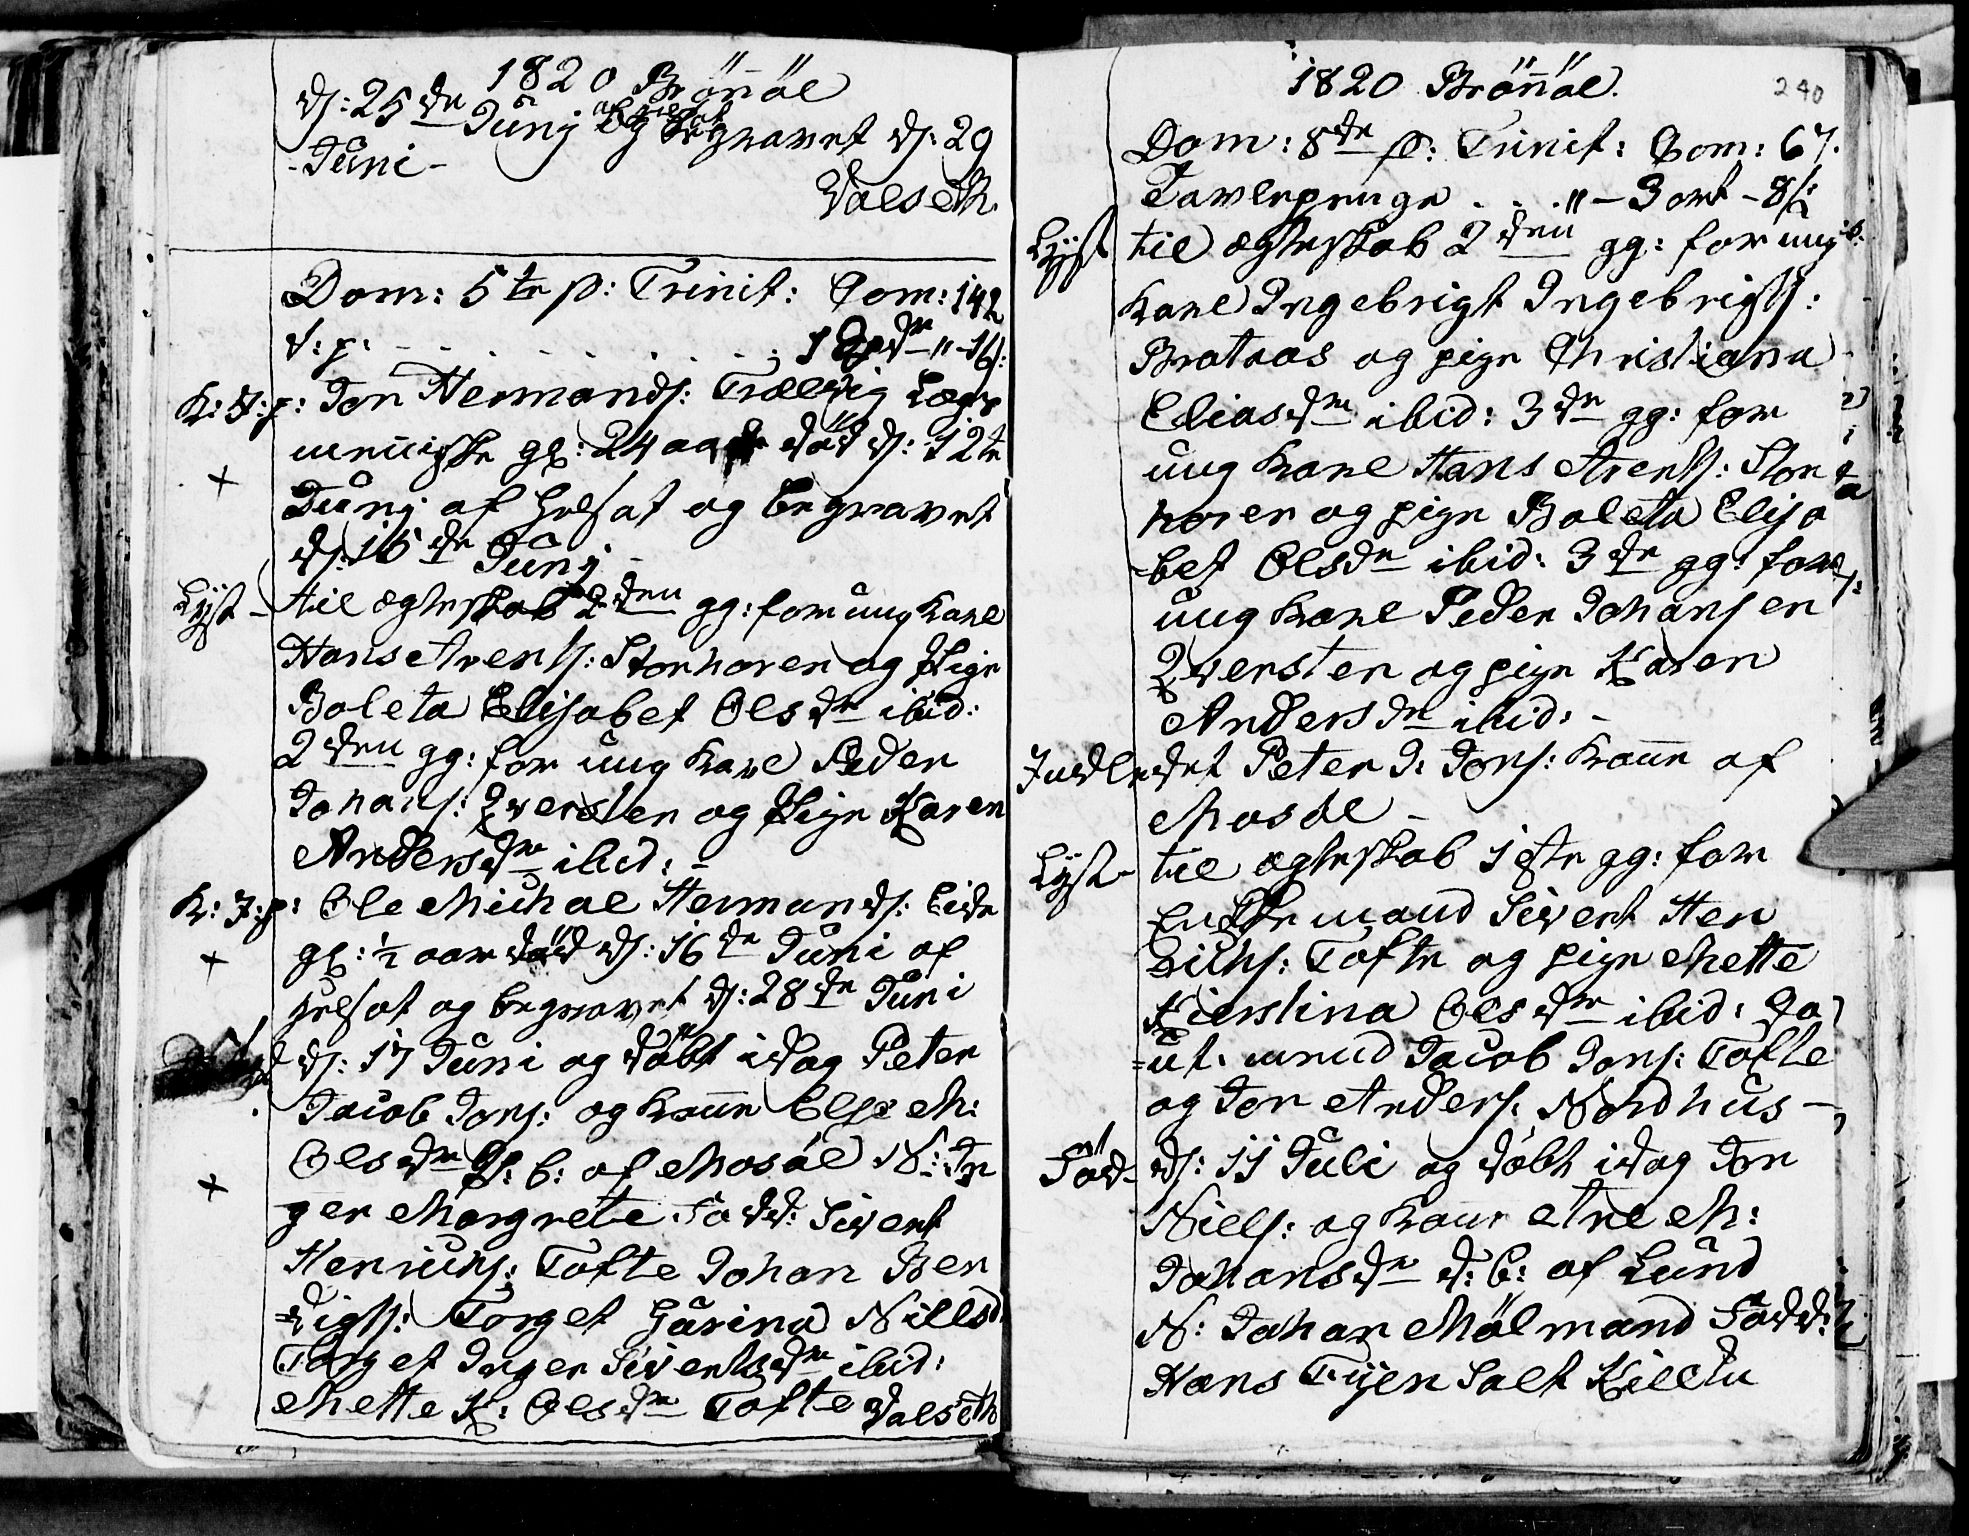 1820 Brönöe
d: 25de Junj af hels: og begravet d: 29
- Juni -
Valseth.
Dom: 5te p: Trinit: Com: 142
t: p: - - - - - - - - 1 Spdr " - 16 ß:
K: J: p: Jon Hermands: Trælvig Lægs
menniske gl: 24 aar död d: 12te
Junj af helsot og begravet
d: 16de Junj -
Lyst - til ægteskab 2den gg: for ung Karl
Hans Arents: Storhoren og Pige
Boleta Elisabet Olsdr ibid:
2den gg: for ung Karl Peder
Johans: Qversten og Pige Karen
Andersdr ibid: -
K: J: p: Ole Michal Hermands: Eide
gl: ½ aar död d: 16de Juni af
helsot og begravet d: 28de Juni
Född d: 17 Juni og döbt idag Peter
Jacob Jons: og Kone Else M:
Olsdr d: b: af Mosöe N: In
ger Margrete Fadd: Sivert
Henrichs: Tofte Johan Ben
=digts: Torget Harina Nillsd
Torget Inger Sivertsdr ibid:
Mette K: Olsdr Tofte Valseth
1820 Brönöe.
240
Dom: 8de p: Trinit: Com: 67.
Tavlepenge . . . " - 3 ort - 8 ß:
Lyst til ægteskab 2den gg: for ung
Karl Ingebrigt Ingebrigts:
Brataas og pige Christiana
Eliasdr ibid: 3de gg: for
ung Karl Hans Arents: Stor
horen og pige Boleta Elisa
=bet Olsdr ibid: 3de gg: for
ung Karl Peder Johansen
Qversten og pige Karen
Andersdr ibid: -
Indledet Peter J: Jons: Kone af
Mosöe -
Lyst - til ægteskab 1ste gg: for
Enkemand Sivert Hen
richs: Tofte og pige Mette
Kierstina Olsdr ibid: Ca
=ut: mend Jacob Jons: Tofte
og Jon Anders: Nordhus -
Föd - d: 11 Juli og döbt idag Jon
Niels: og Kone Ane M:
Johansdr d: b: af Lund
N: Johan Mölmand Fadd:
Hans Tijen Salt Kille